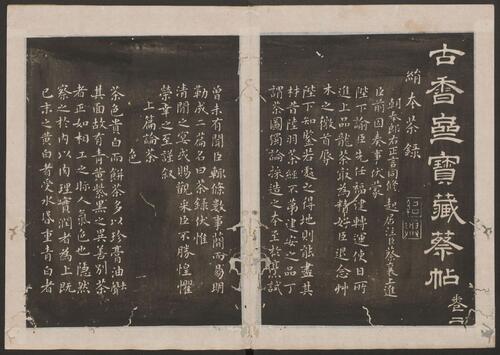 古香齋寶藏蔡帖
卷二
絹本茶錄
朝奉郎右正言同修起居注臣蔡襄上進
臣前因奏事伏蒙
陛下諭臣先任福建轉運使日所
進上品龍茶最為精好臣退念艸
木之微首辱
陛下知鑒若處之得地則能盡其
材昔陸羽茶經不第建安之品丁
謂茶圖獨論採造之本至於烹試
曾未有聞臣輒條數事簡而易明
勒成二篇名曰茶錄伏惟
清閒之宴或賜觀采臣不勝惶懼
榮幸之至謹叙
上篇論茶
色
茶色貴白而餅茶多以珍膏油
其面故有青黃紫黑之異善別茶
者正如相工之眎人氣色也隱然
察之於內以肉理實潤者為上既
已末之黃白者受水昏重青白者